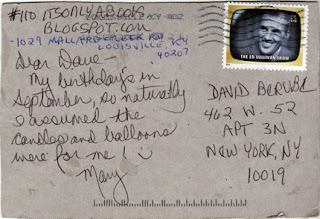 #110 ITSONLYABOOK
BLOGSPOT.COM
1029 MALLARD CREEK RD
LOUISVILLE, KY
40207
Dear Dave –
My birthday's in
September, so naturally
I assumed the
candles and balloons
were for me! :)
Mary
THE ED SULLIVAN SHOW
DAVID BERUBE
462 W. 52
APT 3N
NEW YORK, NY
10019